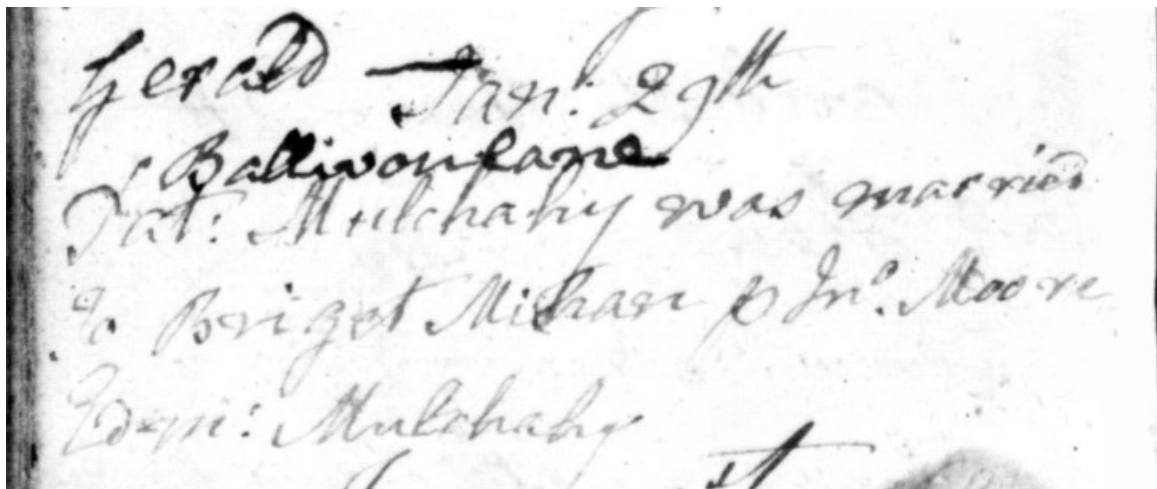 Gerald — Jan: 29th
Ballivonlane
Pat: Mulchahy was married
to Briget Mihan p Jno. Moore
Edm: Mulchahy